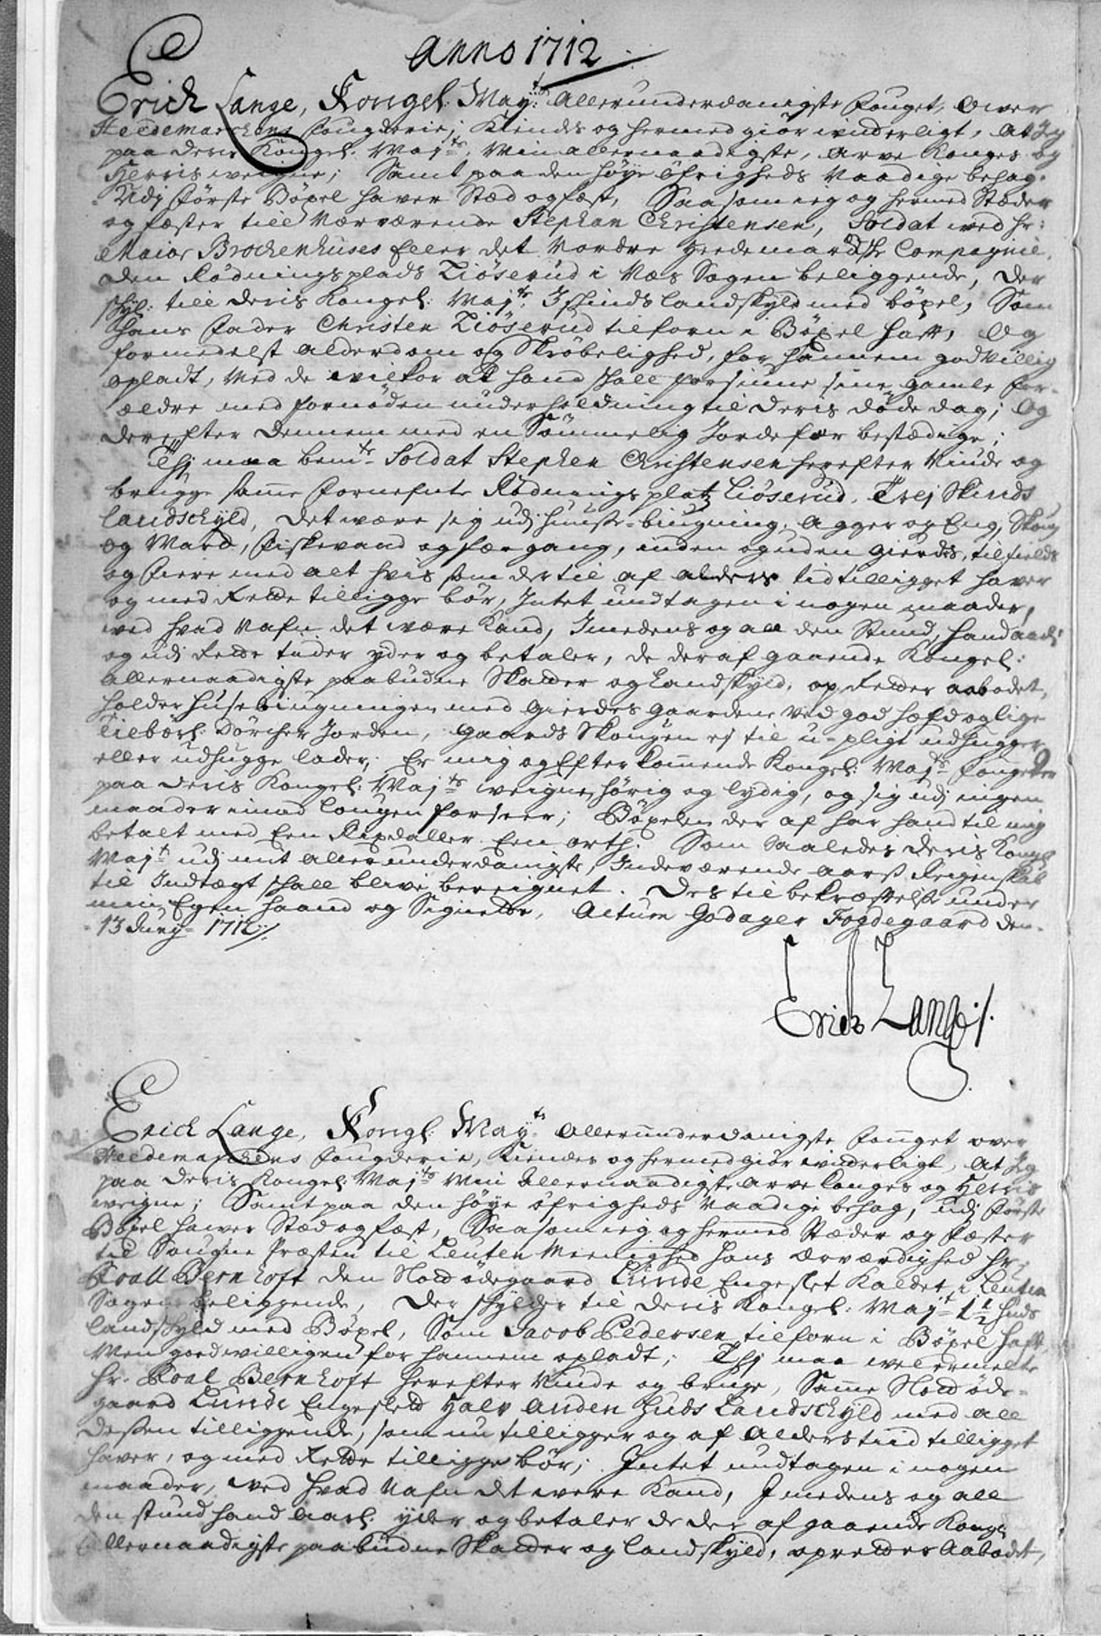 Anno 1712
Erich Lange, Kongel: Mayts: Allerunderdanigste fouget, over
Heedemarchens fougderie; Kiendes og hermed giör witterligt, at Jeg
paa deris Kongel: Majts: Min allernaadigste, arve Konges og
Herris weigne; Samt paa den höye öfrigheds naadige behag,
Udj förste Böxel haver Stæd og fæst, Saasom ieg og hermed Stæder
og fæster till nærværende Stephan Christensen, Soldat wed hr:
Maior Brochenhuses eller det Nordre Hedemarchske Compagnie,
den Rödningsplads Liöserud i Næs Sogen beliggende, der
skyl: till deris Kongel: Majts: 3 skinds landskyld med böxel, Som
hans fader Christen Liöserud tilforn i Böxel haft, Og
formedelst alderdom og Skröbelighed, for hannem godvillig
opladt, Med de wilkor at hand skall forsiune sine gamle for-
ældre med fornöden underholdning til deris döde dag; Og
derefter dennem med en Sömmelig Jordefær bestædige;
Thj maa bemte Soldat Stephen Christensen herefter Niude og
brugge same fornefnte Rödnings platz Liöserud, Trej Skinds
landschyld, det være sig udj huuse-biugning, Agger og Eng, Skoug
og Marck, fiskevand og fægang, inden og uden gierdes, til fields
og fiere med alt hvis som der til af alders tid tilligget haver
og med Rette tilligge bör, Intet undtagen i nogen maader,
wed hvad nafn det være kand, Imedens og all den Stund, hand aarl:
og udj Rette tider yder og betaler, de deraf gaaende Kongel:
Allernaadigste paabudne Skatter og Landskyld, op Retter aabodet,
holder husebiugningen med gierdes gaardene ved god hefd og lige
tilbörl: dörcher Jorden, gaards Skougen ej til u-pligt udhugger
eller udhugge lader; Er mig og Efterkommende Kongel: Majts: fougeder
paa deris Kongel: Majts: weigne, hörig og lydig, og sig udj ingen
maader imod Lougen forseer; Böxelen der af har hand til mig
betalt med Een Rixdaller Een orth: Som saaledes deris Kongl
Majt: udj mit allerunderdanigste, Indeværende aars Reigenskab
til Indtægt skall blive bereignet. Des til bekræftelse under
min Egen haand og Signette, Actum Godager Fogdegaard den
13 Juny 1712
Erich Lange
Erich Lange, Kongl: Mayts: Allerunderdanigste fouget over
Heedemarchens fougderie, Kiendes og hermed giör witterligt, At Jeg
paa deris Kongel: Majts: Min Allernaadigste Arve Konges og Herris
weigne; Samt paa den höye öfrigheds Naadige behag, Udj förste
Böxel haver Stæd og fæst, Saasom ieg og hermed Stæder og fæster
til Sougne Præsten til Leuten Meenighed Hans Ærværdighed Hr:
Roall Bernhoft den Nord ödegaard Lunde Engeslet kaldet, i Leuten
Sogen beliggende, der skylder til deris Kongel: Majt 1½ huds
landskyld med Böxel, Som Jacob Pedersen tilforn i Böxel haft
Men godwilligen for hannem opladt; Thj maa welermelte
hr: Roal Bernhoft herefter Niude og bruge, Same Nord öde-
gaard Lunde Engeslett Halv anden huds Landschyld med all
dessen tilliggende, som nu tilligger og af Alderstiid tilligget
haver, og med Rette tilligge bör; Intet undtagen i nogen
maader, wed hvad Nafn dt være kand, Imedens og all
den stund hand aarl: yder og betaler de der af gaaende Kongl
Allernaadigste paabudne Skatter og landskyld, opretter Aabodet,